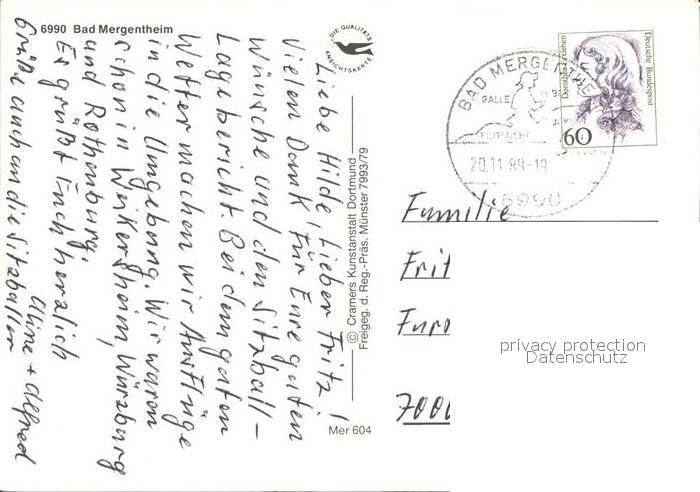 6990 Bad Mergentheim
DIE QUALITÄTS
ANSICHTSKARTE
Liebe Hilde, Lieber Fritz!
Vielen Dank für Eure guten
Wünsche und den Sitzball-
Lagebericht. Bei dem guten
Wetter machen wir Ausflüge
in die Umgebung. Wir waren
schon in Weikersheim, Würzburg
und Rothenburg.
Es grüßt Euch herzlich
Aline + Alfred
Grüße auch an die Sitzballer
© Cramers Kunstanstalt Dortmund
Freigeg. d. Reg.-Präs. Münster 7993/79
Mer 604
BAD MERGENTHE
GALLE
20.11.89-19
6990
Deutsche Bundespost
60
Familie
Frit
Euro
privacy protection
Datenschutz
7000